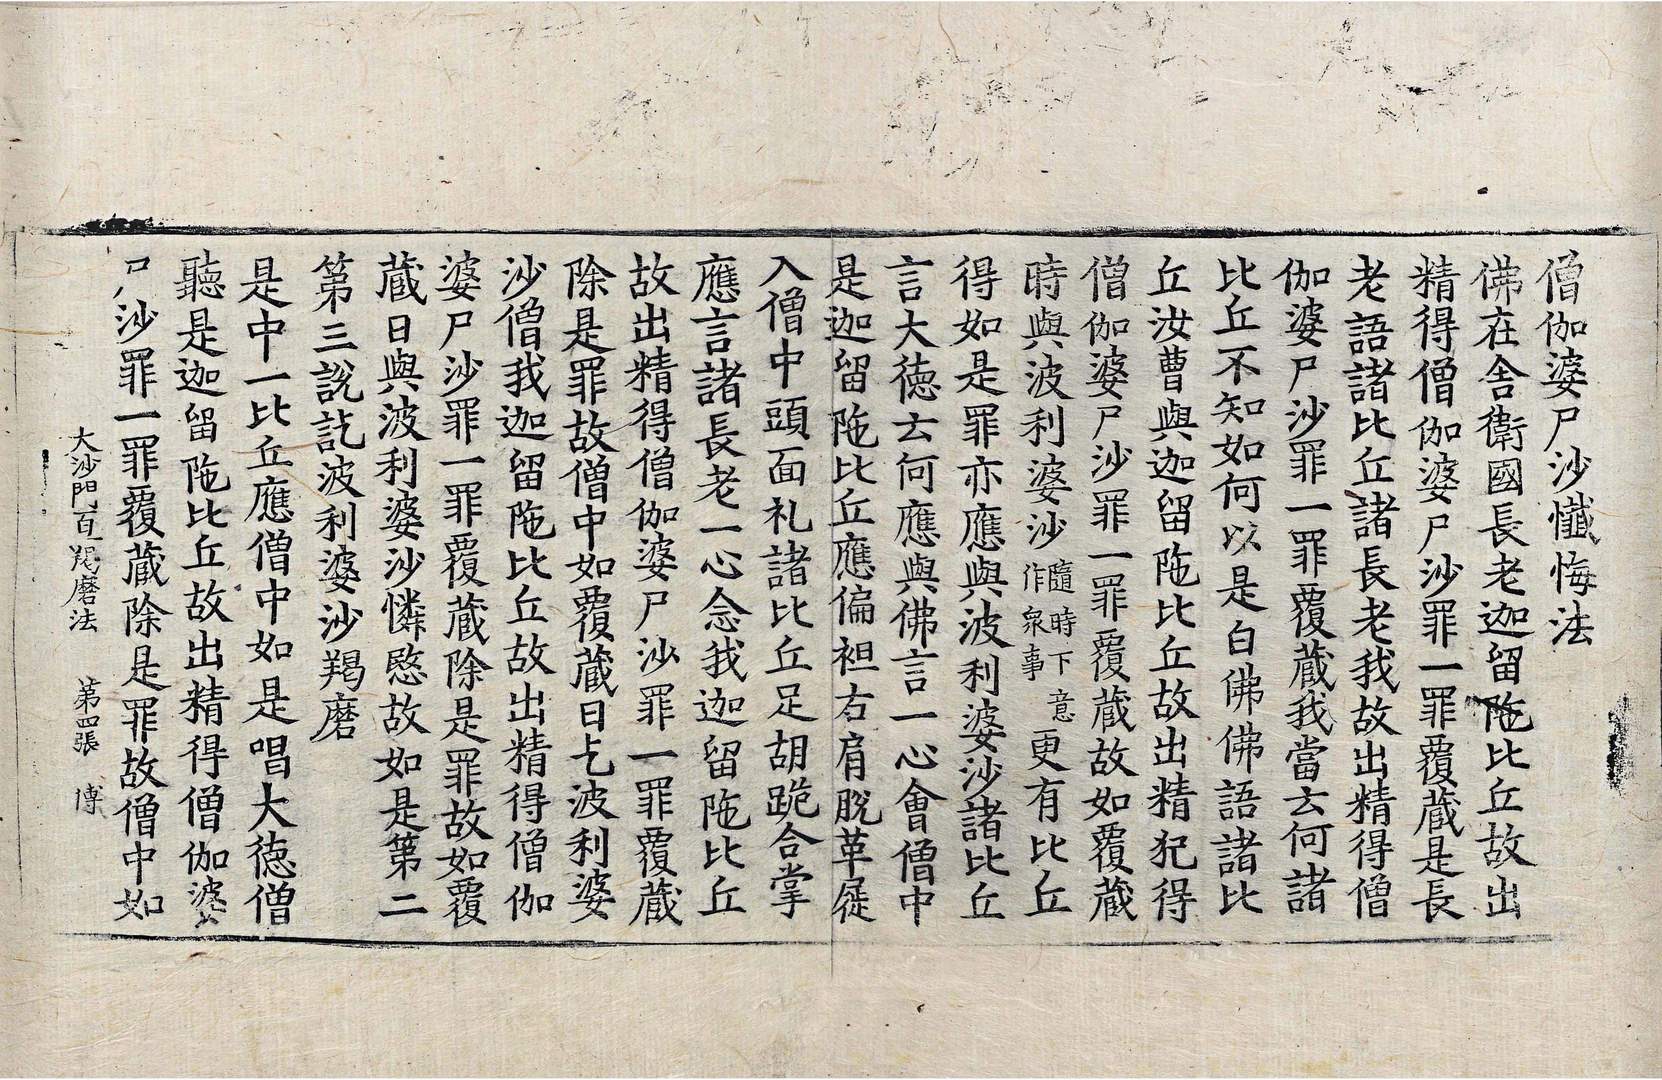 僧伽婆尸沙懺悔法
佛在舎衛國長老迦留陁比丘故出
精得僧伽婆尸沙罪一罪覆蔵是長
老語諸比丘諸長老我故出精得僧
伽婆尸沙罪一罪覆蔵我當云何諸
比丘不知如何以是白佛佛語諸比
丘汝曹與迦留陁比丘故出精犯得
僧伽婆尸沙罪一罪覆蔵故如覆蔵
時與波利婆沙隨時下意作衆事更有比丘
得如是罪亦應與波利婆沙諸比丘
言大徳云何應與佛言一心會僧中
是迦留陁比丘應偏袒右肩脫革屣
入僧中頭面礼諸比丘足胡跪合掌
應言諸長老一心念我迦留陁比丘
故出精得僧伽婆尸沙罪一罪覆蔵
除是罪故僧中如覆蔵日乞波利婆
沙僧我迦留陁比丘故出精得僧伽
婆尸沙罪一罪覆蔵除是罪故如覆
蔵日與波利婆沙憐愍故如是第二
第三說訖波利婆沙羯磨
是中一比丘應僧中如是唱大徳僧
聽是迦留陁比丘故出精得僧伽婆
尸沙罪一罪覆蔵除是罪故僧中如
大沙門百一羯磨法 第四張 博